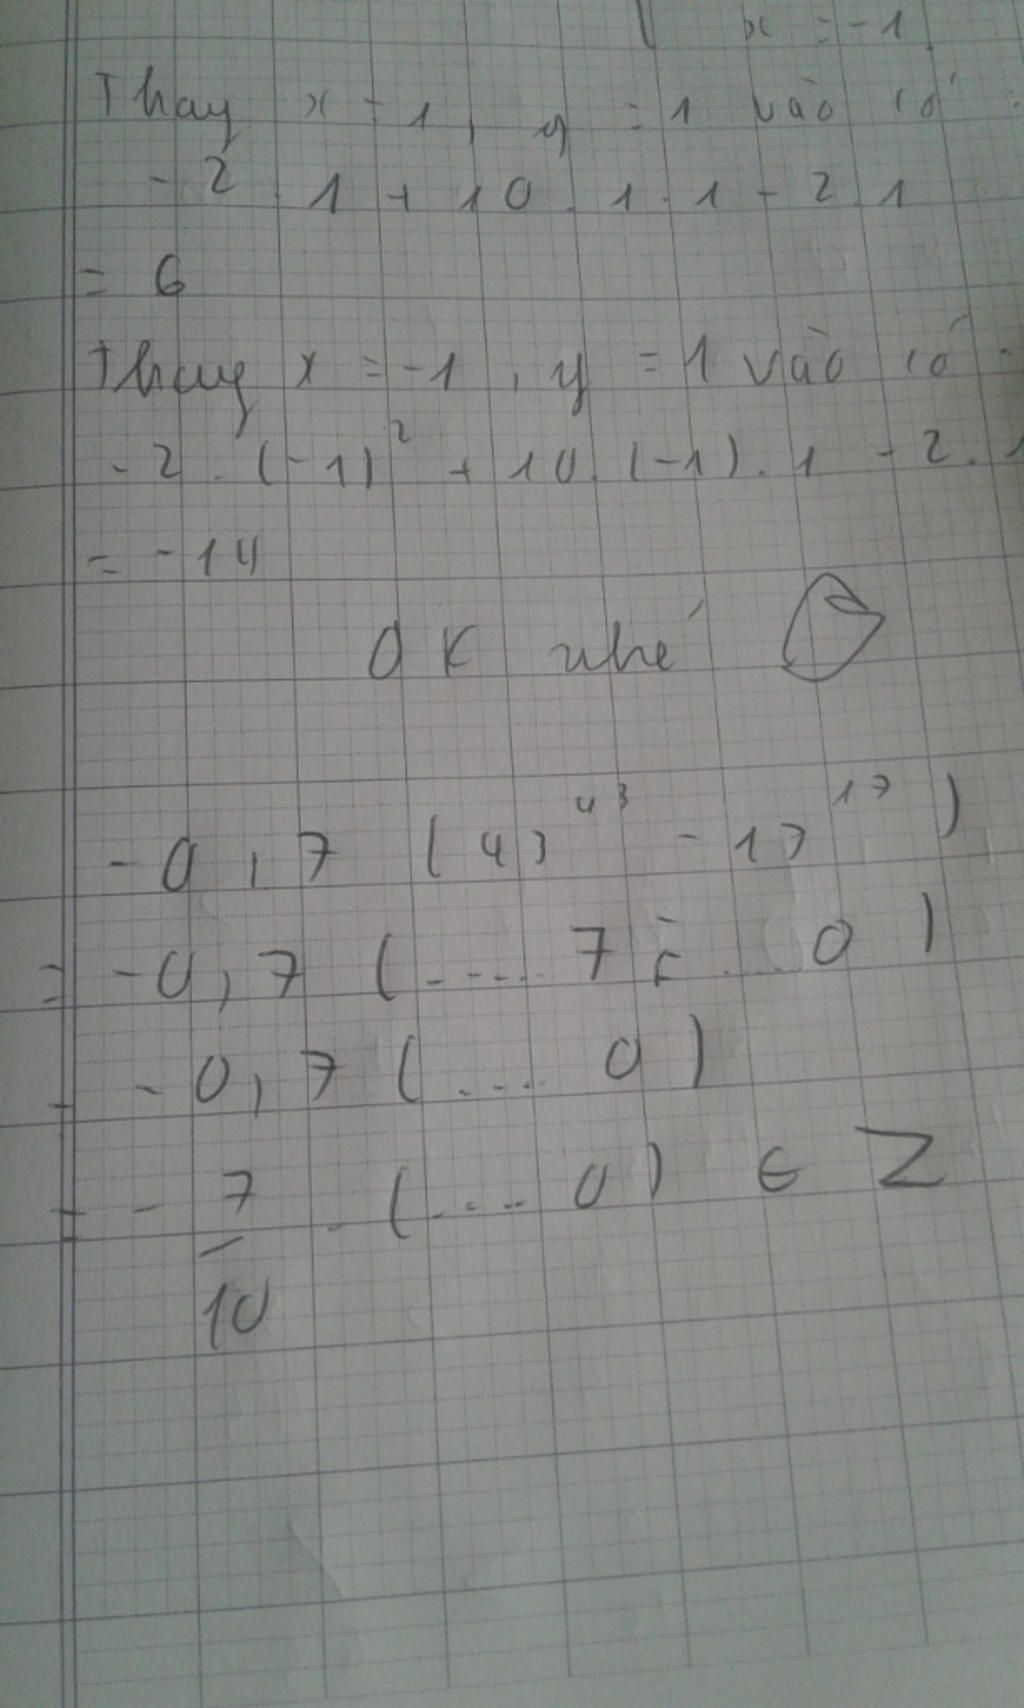 x = -1
Thay x = 1, y = 1 vào có :
- 2 . 1 + 10 . 1 . 1 - 2 . 1
= 6
Thay x = -1 , y = 1 vào có :
- 2 . (-1)² + 10 . (-1) . 1 - 2 . 1
= -14
OK nhé
- 0,7 (43⁴³ - 17¹⁷)
= - 0,7 (.... 7 - ... 0)
= - 0,7 (.... 0)
= - 7/10 . (.... 0) ∈ Z